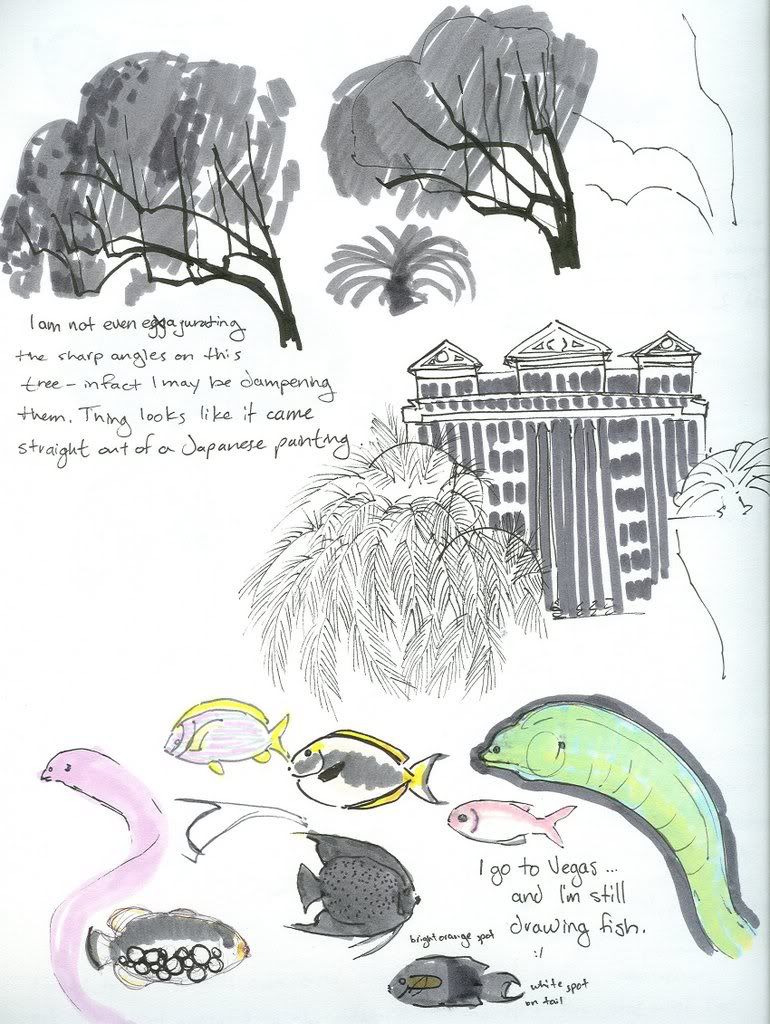 I am not even eggajurating
the sharp angles on this
tree - infact I may be dampening
them. Thing looks like it came
straight out of a Japanese painting.
I go to Vegas ...
and I'm still
drawing fish.
:/
bright orange spot
white spot
on tail